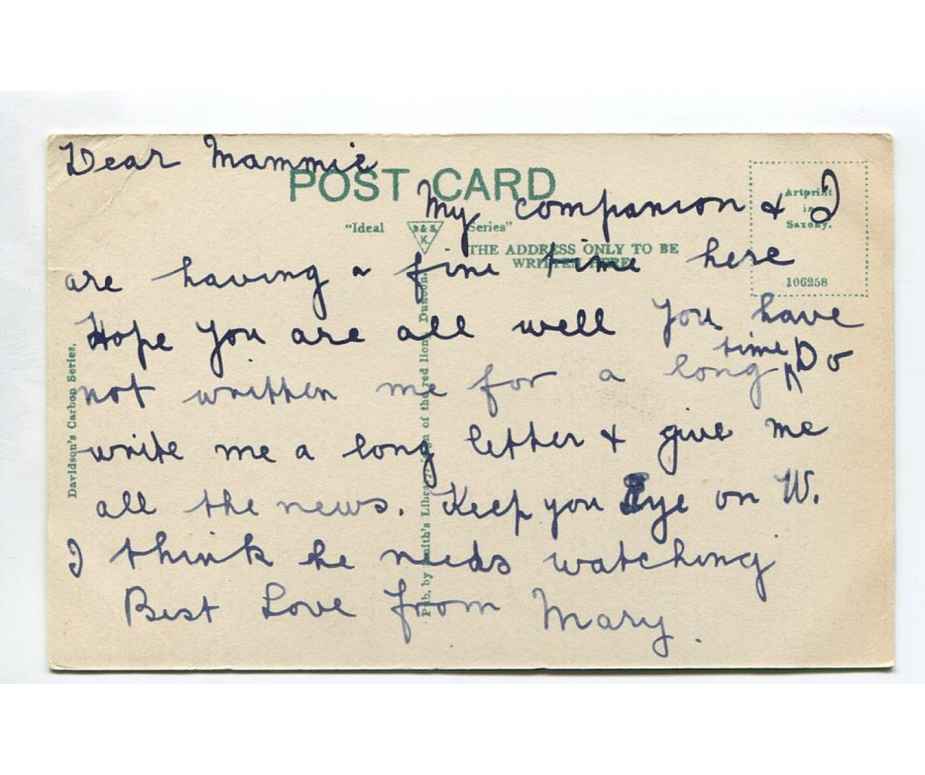 Dear Mammie
POST CARD
My companion & I
"Ideal Series"
D & S. K.
THE ADDRESS ONLY TO BE
WRITTEN HERE
Artprint
in
Saxony.
106258
are having a fine time here
Hope you are all well You have
not written me for a long time Do
write me a long letter & give me
all the news. Keep you Eye on W.
I think he needs watching
Best Love from Mary.
Davidson's Carbon Series.
Pub. by Smith's Library, Sign of the red lion, Dunoon.